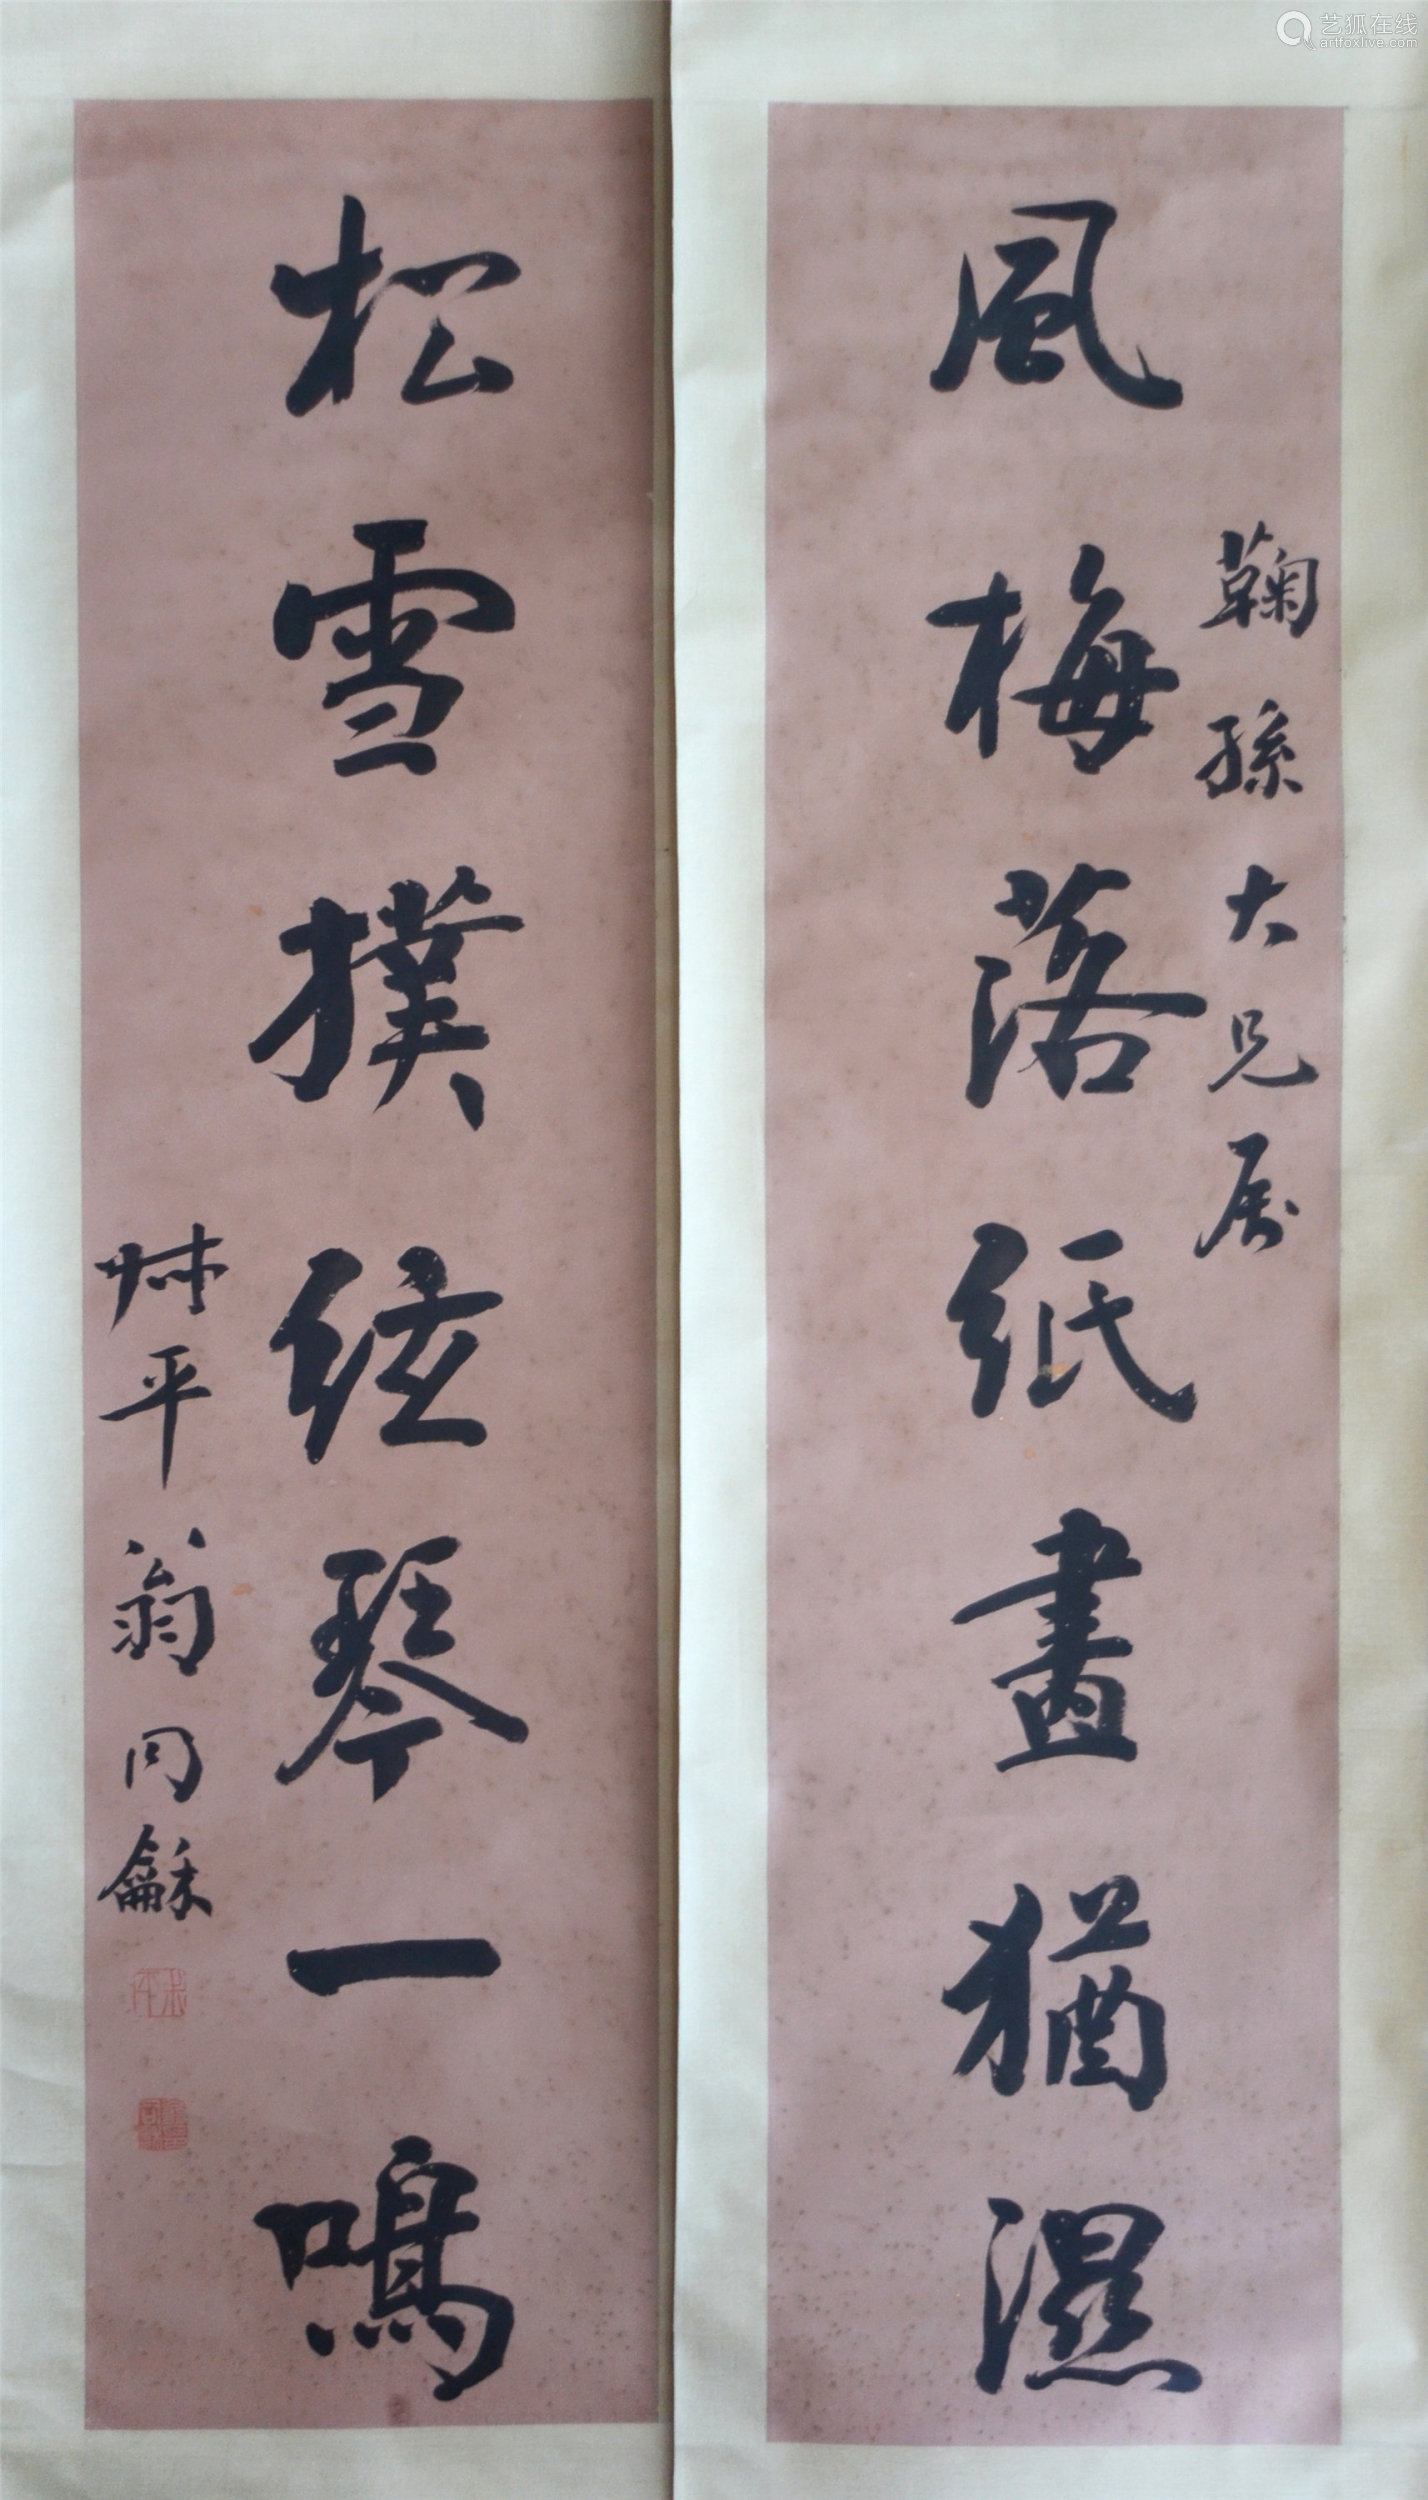 艺狐在线
artfoxlive.com
鞠孫大兄属
風梅落紙畫猶濕
松雪撲絃琴一鳴
叔平翁同龢